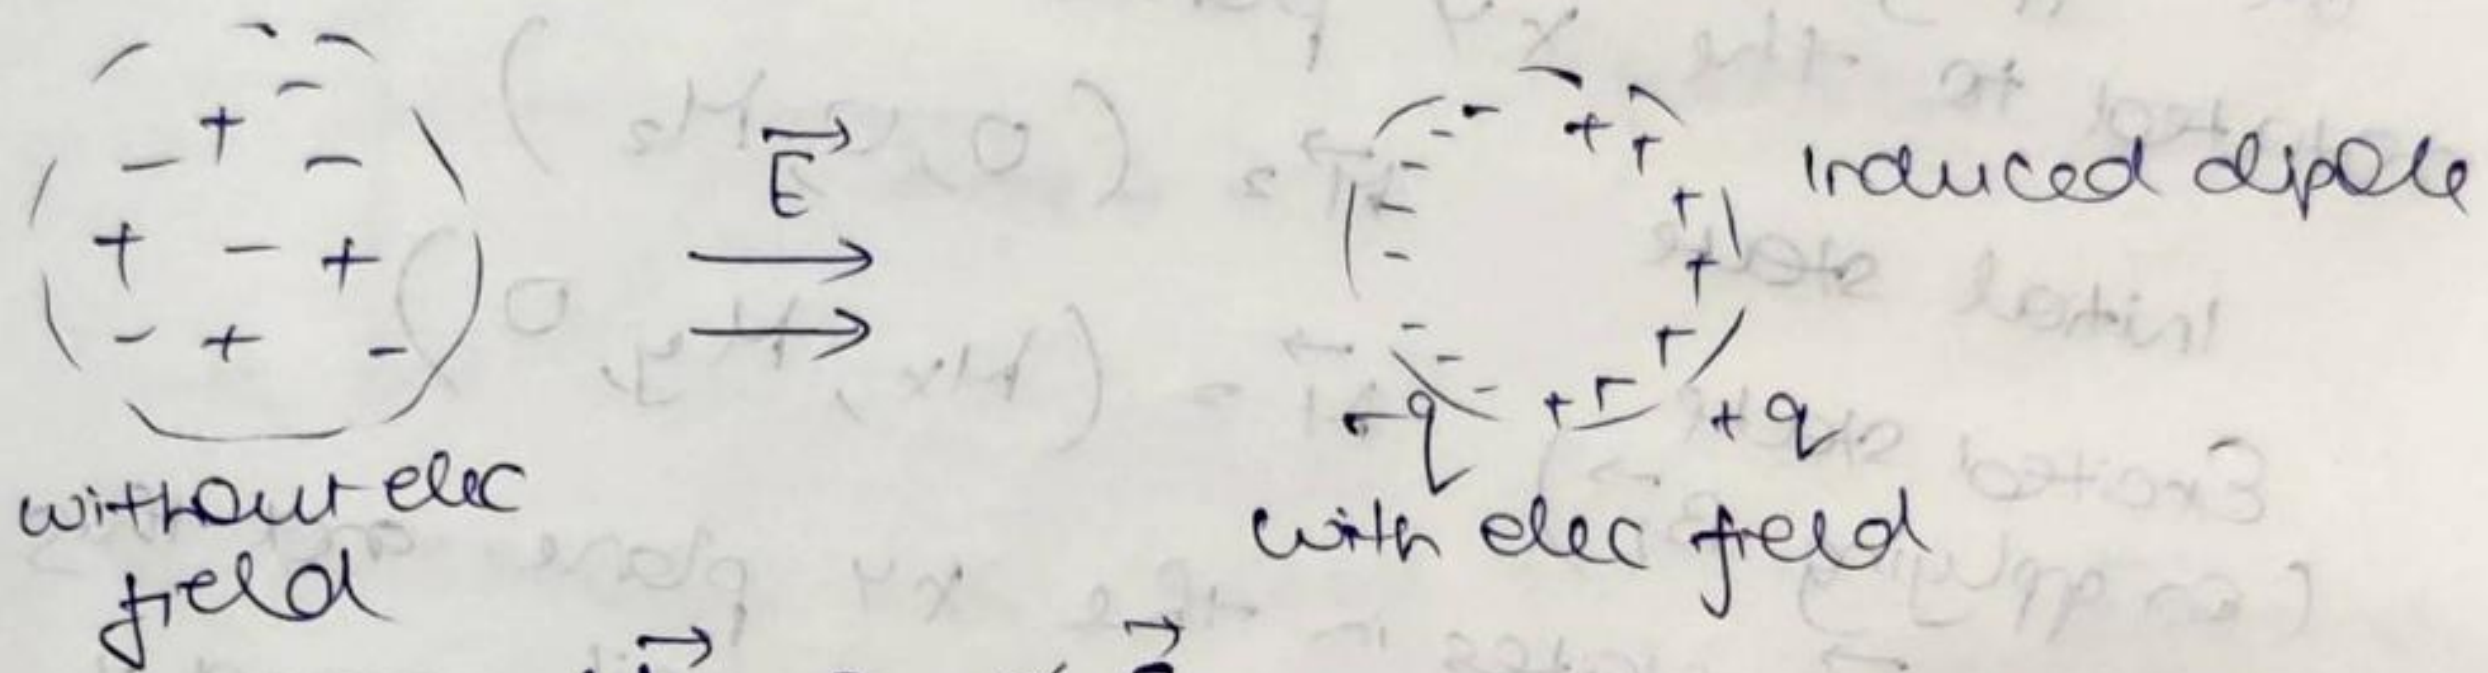 E
induced dipole
-q
+q
without elec
field
with elec field